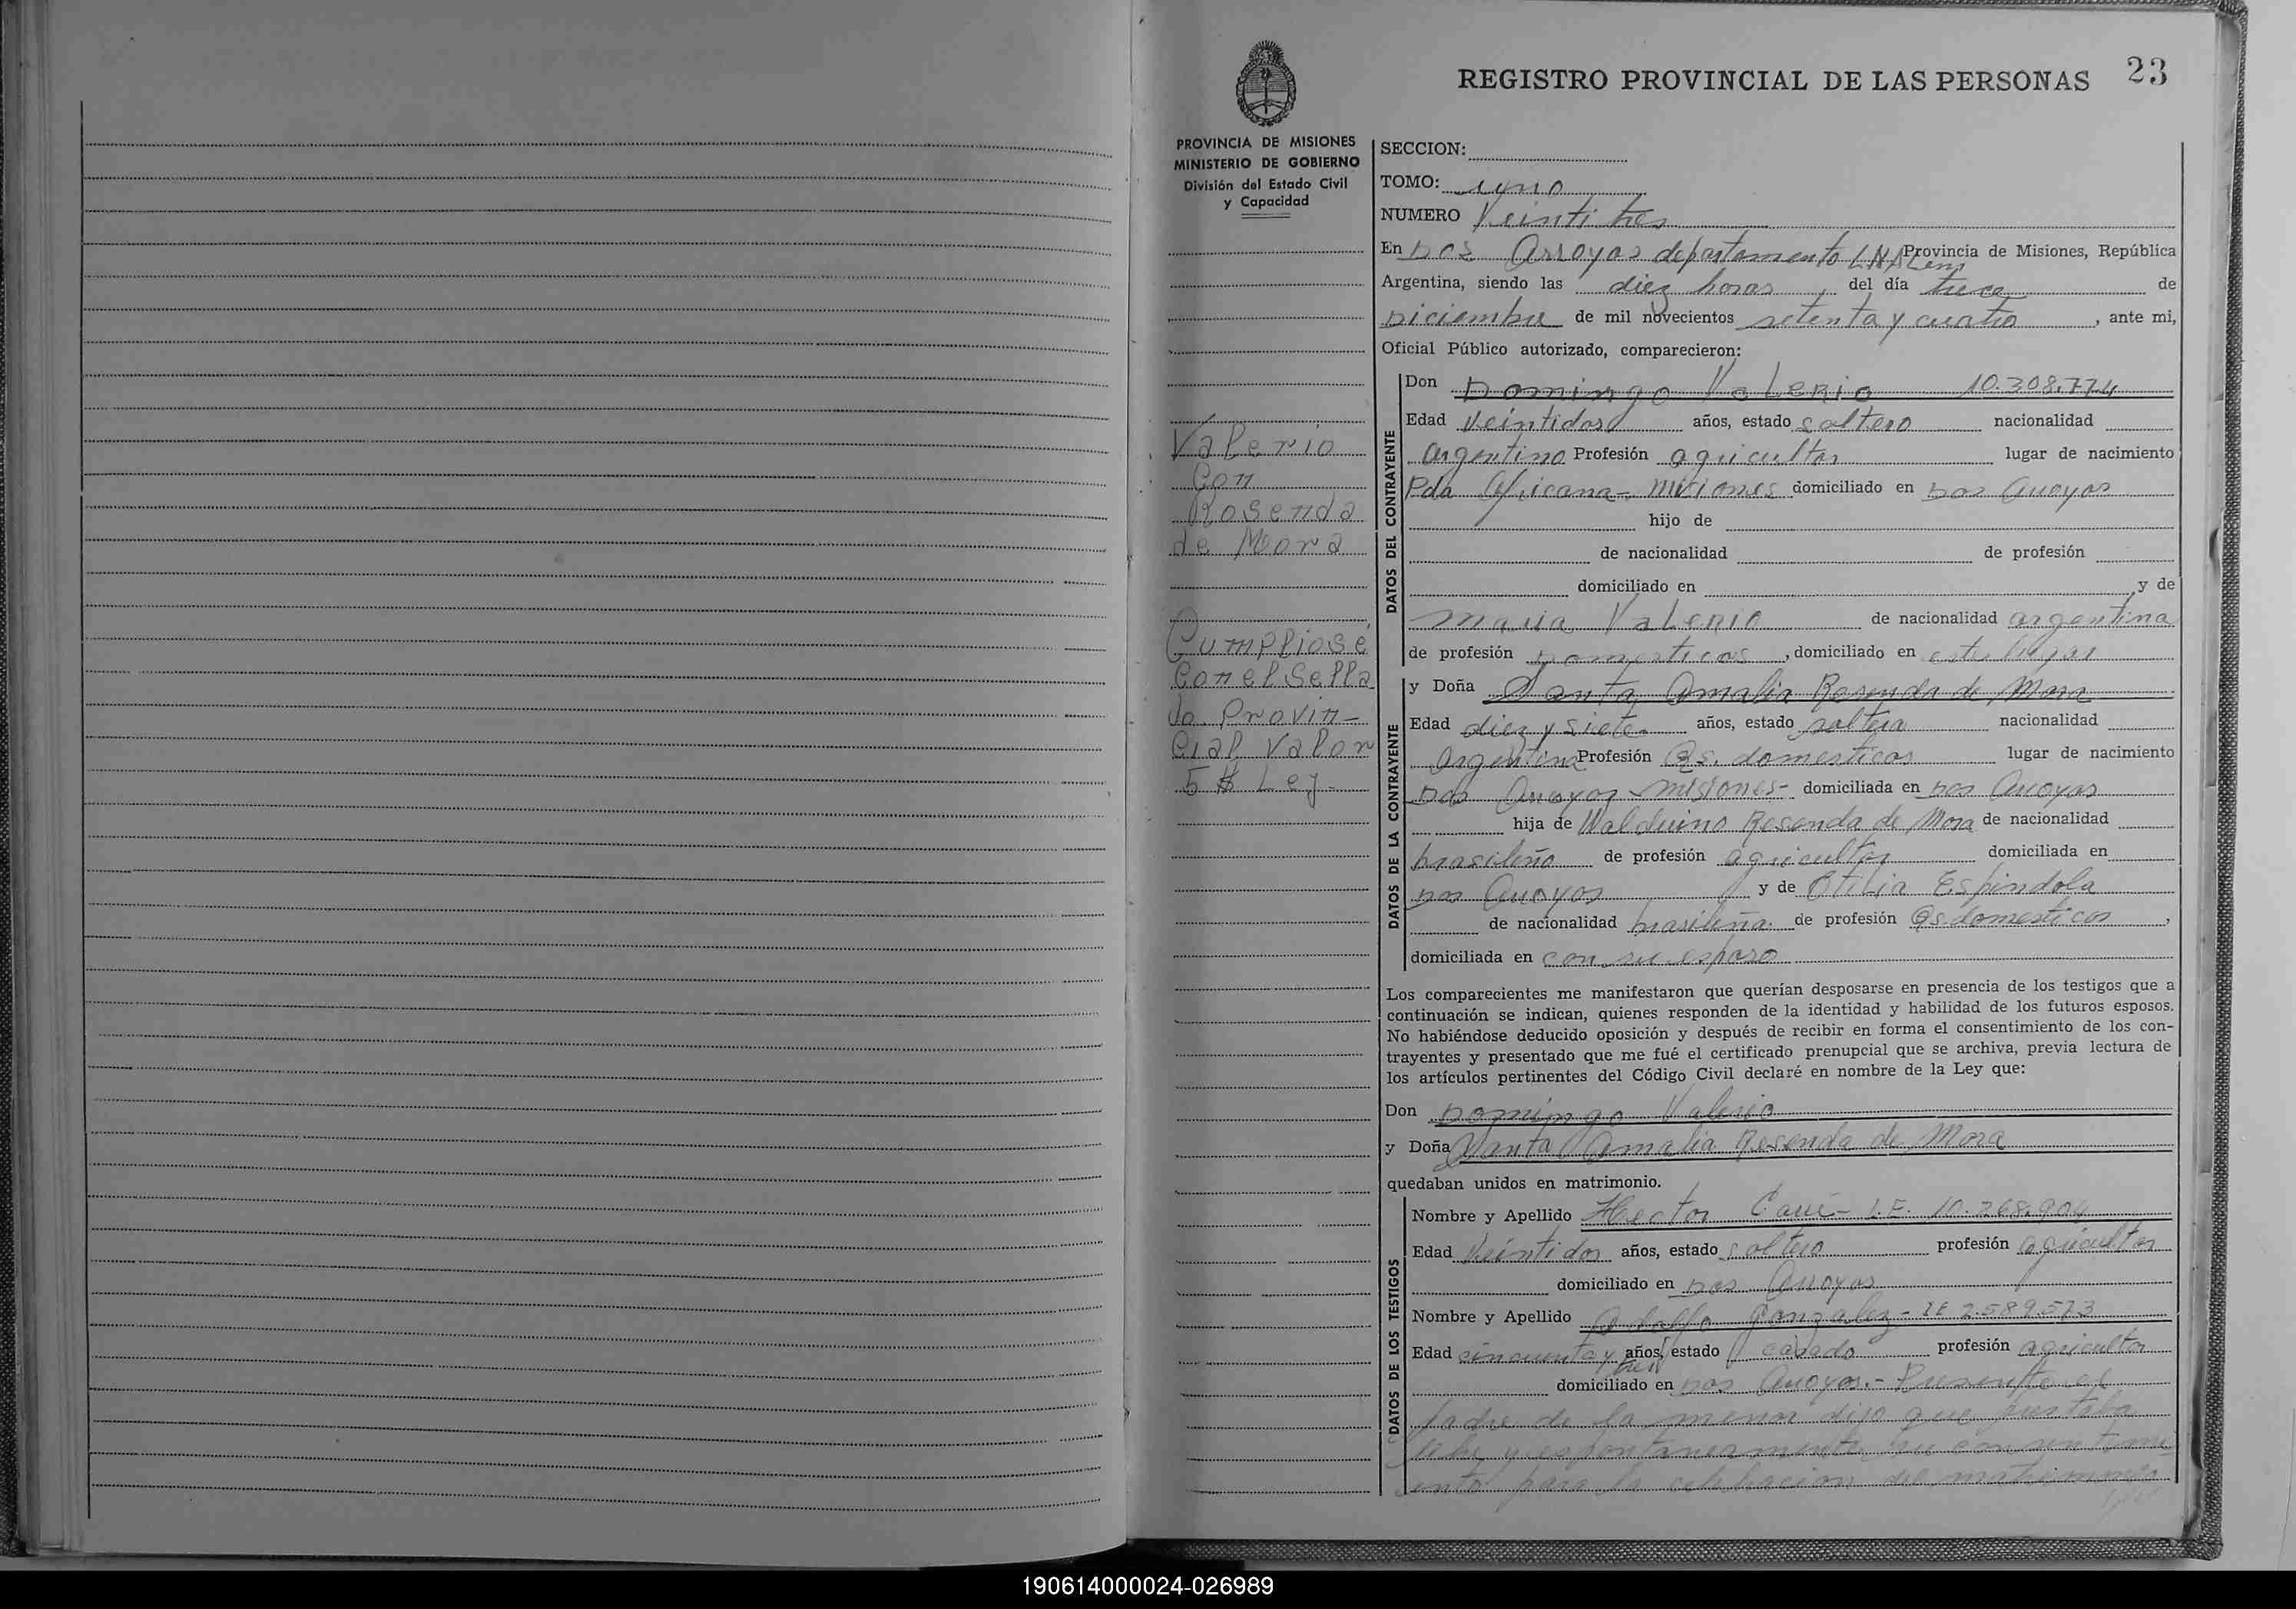 REGISTRO PROVINCIAL DE LAS PERSONAS 23
PROVINCIA DE MISIONES
MINISTERIO DE GOBIERNO
División del Estado Civil
y Capacidad
Valerio
Con
Rosenda
de Mora
Cumpliose
Con el Sella
do Provin-
cial Valor
5 $ Ley-
SECCION:
TOMO: uno
NUMERO Veintitres
En Dos Arroyos departamento L N Alem Provincia de Misiones, República
Argentina, siendo las diez horas, del día trece de
Diciembre de mil novecientos setenta y cuatro, ante mi,
Oficial Público autorizado, comparecieron:
DATOS DEL CONTRAYENTE
Don Domingo Valerio 10.308.774
Edad Veintidos años, estado soltero nacionalidad
Argentino Profesión agricultor lugar de nacimiento
Pda Africana- Misiones domiciliado en Dos Arroyos
hijo de
de nacionalidad de profesión
domiciliado en , y de
Maria Valerio de nacionalidad argentina
de profesión domesticos, domiciliado en este lugar
DATOS DE LA CONTRAYENTE
y Doña Santa Amalia Resenda de Mora
Edad diez y siete años, estado soltera nacionalidad
Argentina Profesión Qs. domesticos lugar de nacimiento
Dos Arroyos Misiones- domiciliada en Dos Arroyos
hija de Walduino Resenda de Mora de nacionalidad
brasileño de profesión agricultor domiciliada en
Dos Arroyos y de Otilia Espindola
de nacionalidad brasileña de profesión Qs. domesticos,
domiciliada en con su esposo
Los comparecientes me manifestaron que querían desposarse en presencia de los testigos que a
continuación se indican, quienes responden de la identidad y habilidad de los futuros esposos.
No habiéndose deducido oposición y después de recibir en forma el consentimiento de los con-
trayentes y presentado que me fué el certificado prenupcial que se archiva, previa lectura de
los artículos pertinentes del Código Civil declaré en nombre de la Ley que:
Don Domingo Valerio
y Doña Santa Amalia Resenda de Mora
quedaban unidos en matrimonio.
DATOS DE LOS TESTIGOS
Nombre y Apellido Hector - L.E. 10.268.904
Edad Veintidos años, estado soltero profesión agricultor
domiciliado en Dos Arroyos
Nombre y Apellido Adolfo Gonzalez - LE 2.589.573
Edad cincuenta y tres años, estado casado profesión agricultor
domiciliado en Dos Arroyos.- Presente el
padre de la menor dijo que prestaba
libre y espontaneamente su consentimi-
ento para la celebracion del matrimonio
190614000024-026989